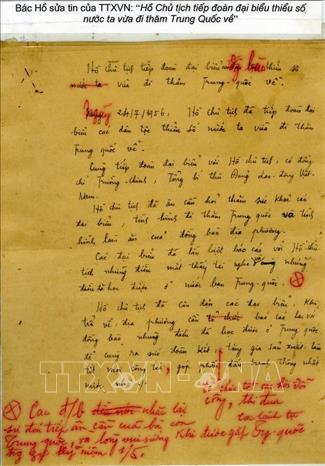 Bác Hồ sửa tin của TTXVN: “Hồ Chủ tịch tiếp đoàn đại biểu thiểu số
nước ta vừa đi thăm Trung Quốc về”
Hồ Chủ tịch tiếp đoàn đại biểu đồng bào thiểu số
nước ta vừa đi thăm Trung quốc về.
Ngày 24/7/1956. Hồ Chủ tịch đã tiếp đoàn đại
biểu các dân tộc thiểu số nước ta vừa đi thăm
Trung quốc về.
Cùng tiếp đoàn đại biểu với Hồ Chủ tịch, có đồng
chí Trường-Chinh, Tổng bí thư Đảng Lao-động Việt-
Nam.
Hồ Chủ tịch đã ân cần hỏi thăm sức khỏe các
đại biểu, tình hình đi thăm Trung quốc và tình
hình làm ăn của đồng bào địa phương.
Các đại biểu đã lần lượt báo cáo với Hồ Chủ
tịch những điều mắt thấy tai nghe những
điều đã học được ở nước bạn Trung-quốc.
Hồ Chủ tịch đã căn dặn các đại biểu, khi
trở về địa phương cần báo cáo lại với
đồng bào những điều đã học được ở Trung quốc
để cùng ra sức đoàn kết, tăng gia sản xuất,
góp phần đấu tranh thống nhất
TTXVN
Các đ/b nhắc lại
sự đối tiếp ân cần của bà con
Trung quốc, và lòng vui sướng khi được gặp
1/5.